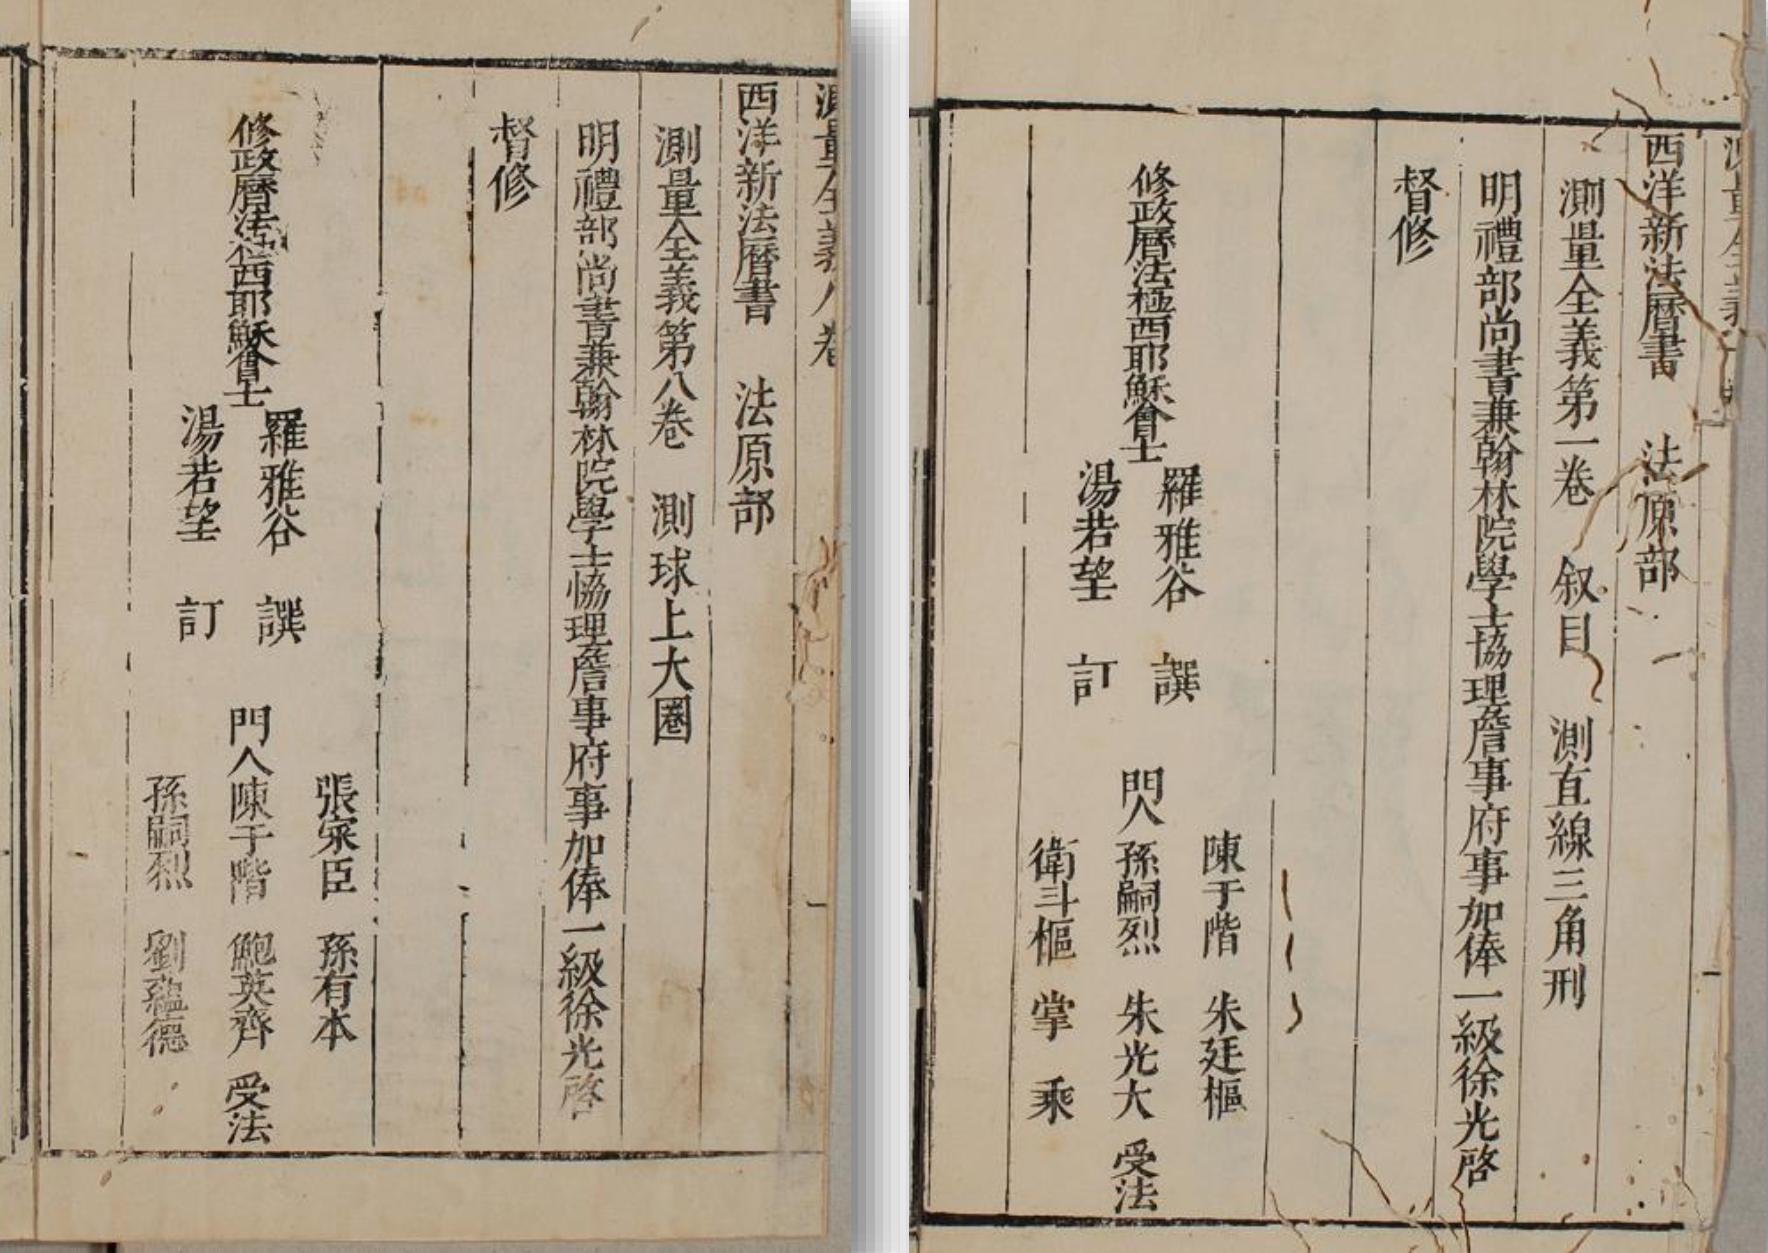 西洋新法曆書　法原部
測量全義第一卷　叙目　測直線三角刑
明禮部尚書兼翰林院學士協理詹事府事加俸一級徐光啓
督修
修政曆法極西耶穌會士
羅雅谷　譔
湯若望　訂
門人
陳于階　朱廷樞
孫嗣烈　朱光大
衛斗樞　掌　乘
受法
測量全義八卷
西洋新法曆書　法原部
測量全義第八卷　測球上大圈
明禮部尚書兼翰林院學士恊理詹事府事加俸一級徐光啓
督修
修政曆法極西耶穌會士
羅雅谷　譔
湯若望　訂
門人
張寀臣　孫有本
陳于階　鮑英齊
孫嗣烈　劉蘊德
受法